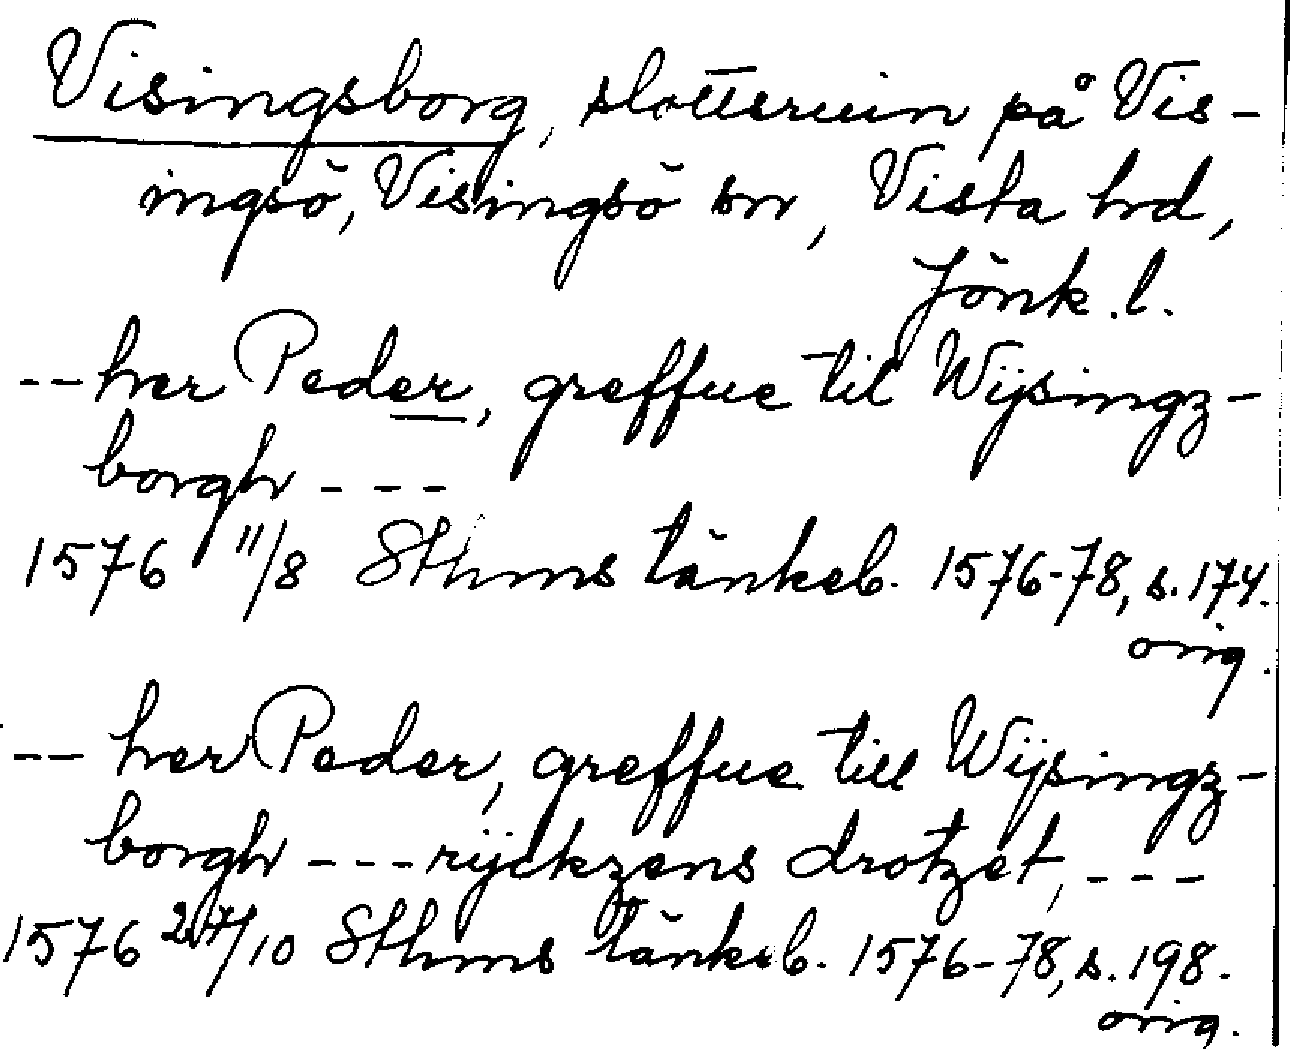 Visingsborg, slottsruin på Vis-
ingsö, Visingsö sn, Vista hrd,
Jönk. l.
-- her Peder, greffue til Wijsingz-
borgh ---
1576 11/8 Sthms tänkeb. 1576-78, s. 174.
orig.
-- her Peder, greffue till Wijsingz-
borgh --- rijckzens drotzet, ---
1576 27/10 Sthms tänkeb. 1576-78, s. 198.
orig.